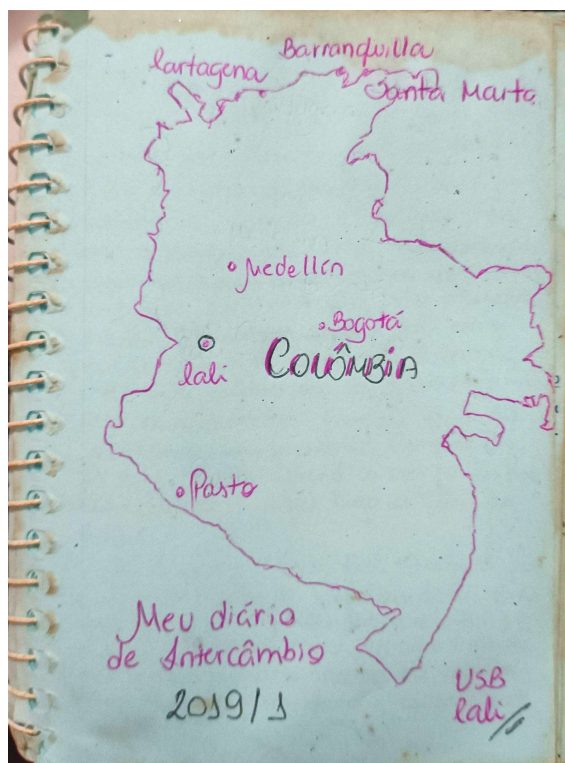 Barranquilla
Cartagena
Santa Marta
Medellín
Bogotá
Cali
COLÔMBIA
Pasto
Meu diário
de Intercâmbio
2019/1
USB
Cali